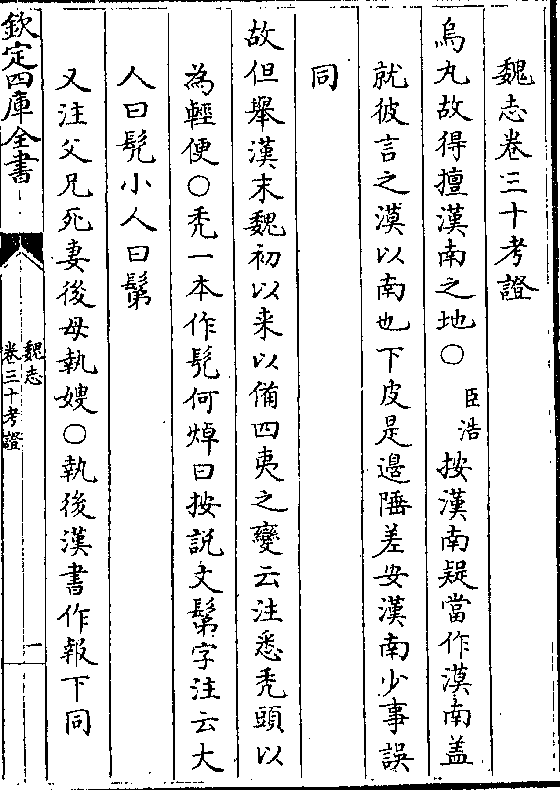 魏志卷三十考證
烏丸故得擅漢南之地○臣浩按漢南疑當作漠南盖
就彼言之漠以南也下皮是邊陲差安漢南少事誤
同
故但舉漢末魏初以来以備四夷之變云注悉秃頭以
為輕便○秃一本作髠何焯曰按説文鬀字注云大
人曰髠小人曰鬀
又注父兄死妻後母執嫂○執後漢書作報下同
欽定四庫全書
魏志
卷三十考證
一